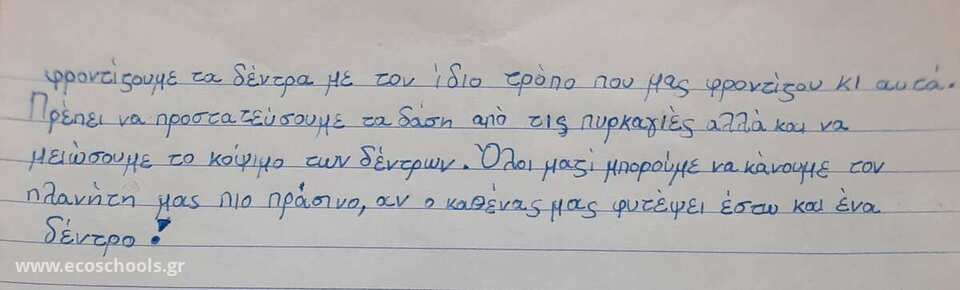 φροντίζουμε τα δέντρα με τον ίδιο τρόπο που μας φροντίζου κι αυτά.
Πρέπει να προστατεύσουμε τα δάση από τις πυρκαγιές αλλά και να
μειώσουμε το κόψιμο των δέντρων. Όλοι μαζί μπορούμε να κάνουμε τον
πλανήτη μας πιο πράσινο, αν ο καθένας μας φυτέψει έστω και ένα
δέντρο!
www.ecoschools.gr